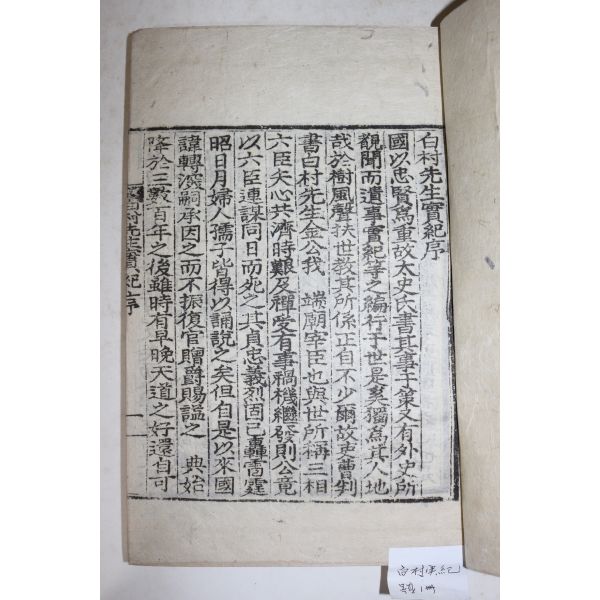 白村先生實紀序
國以忠賢爲重故太史氏書其事于策又有外史所
覩聞而遺事實紀等之編行于世是奚獨爲其人地
哉於樹風聲扶世教其所係正自不少爾故吏曹判
書白村先生金公我 端廟宰臣也與世所稱三相
六臣矢心共濟時艱及禪受有事禍機繼發則公竟
以六臣連謀同日而死之其貞忠義烈固已轟雷霆
昭日月婦人孺子皆得以誦說之矣但自是以來國
諱轉深嗣承因之而不振復官贈爵賜謚之 典始
降於三數百年之後雖時有早晩天道之好還自可
白村先生實紀序
一
白村實紀
1冊